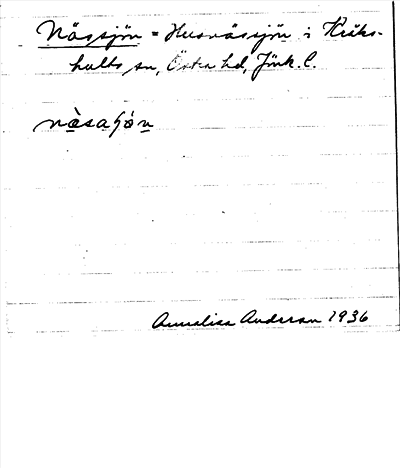 Nässjön = Husnässjön i Kråks-
hults sn, Östra hd, Jönk. l.
nàsaʃön
Annalisa Anderson 1936